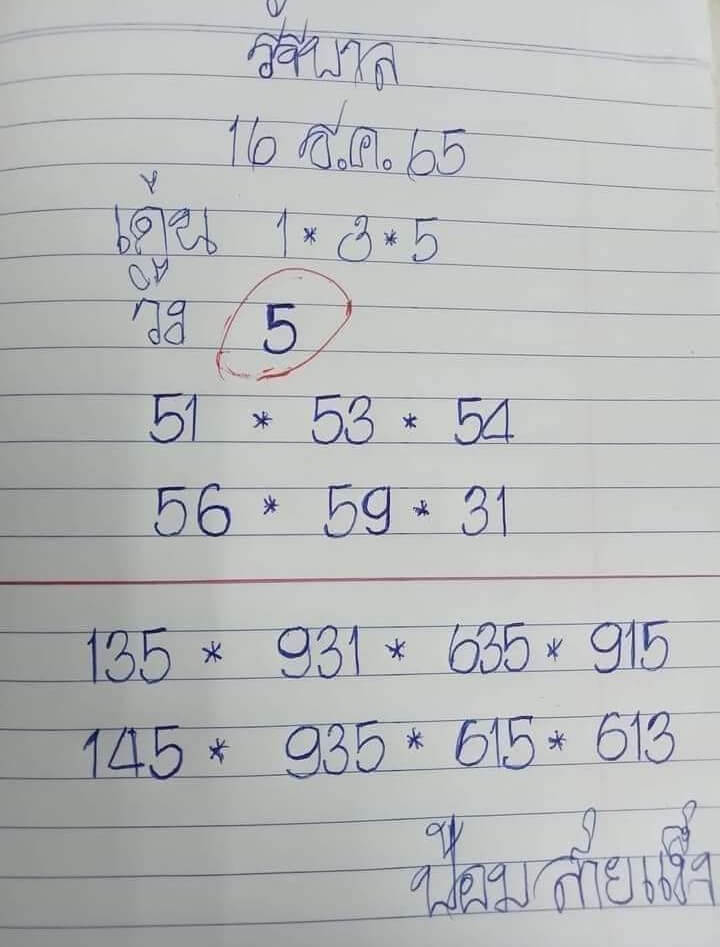 รัฐบาล
16 ส.ค. 65
เด่น 1 * 3 * 5
วิ่ง 5
51 * 53 * 54
56 * 59 * 31
135 * 931 * 635 * 915
145 * 935 * 615 * 613
ป้อม